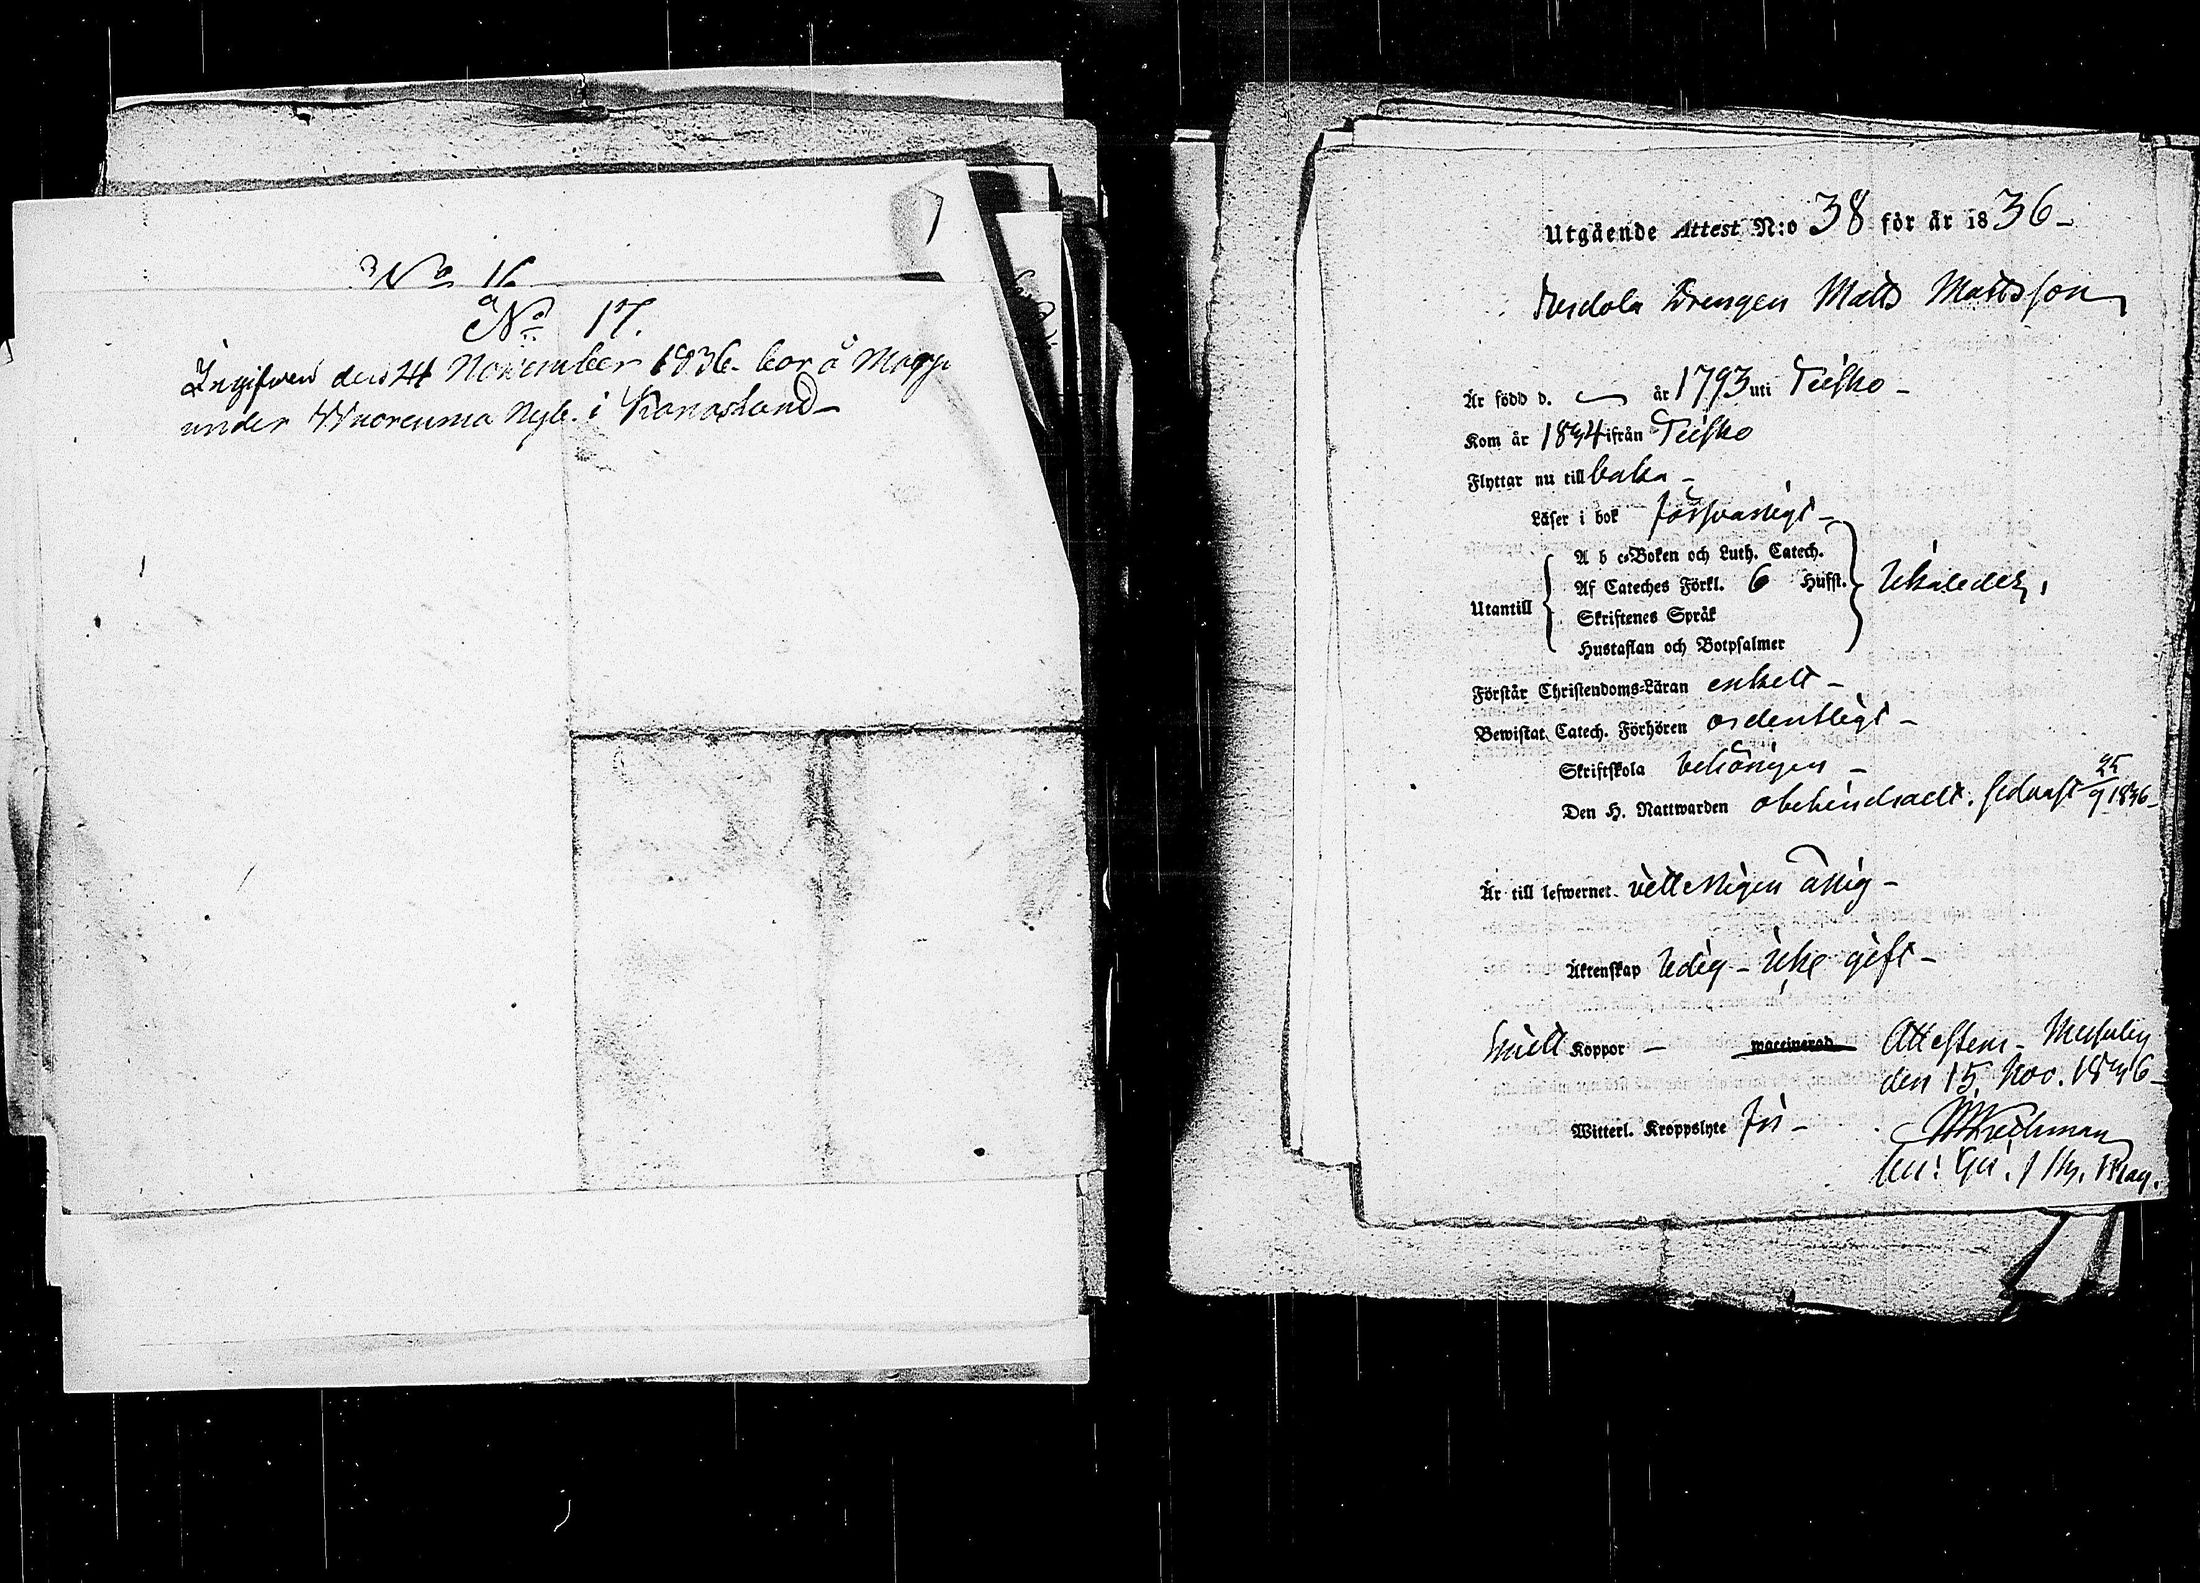 No 16
No 17.
Ingifwen den 24 November 1836. bor å
under Nyb. i Konoskand
Utgående Attest N:o 38 för år 1836
Drengen Matts Mattsson
Är född d. — år 1793 uti Teisko
Kom år 1834 ifrån Teisko
Flyttar nu till baka
Läser i bok försvarligt
Utantill
A b c-Boken och Luth. Catech.
Af Cateches Förkl. 6 Hufst.
Skriftenes Språk
Hustaflan och Botpsalmer
Förstår Christendoms-Läran enkelt
Bewistat Catech. Förhören ordentligt
Skriftskola behörigen
Den H. Nattwarden obehindradt. sednast 25/9 1836
Är till lefwernet vitterligen ärlig
Äktenskap ledig - icke gift
haft Koppor — waccinerad
Attesteras
den 15. Nov. 1836
Witterl. Kroppslyte fri